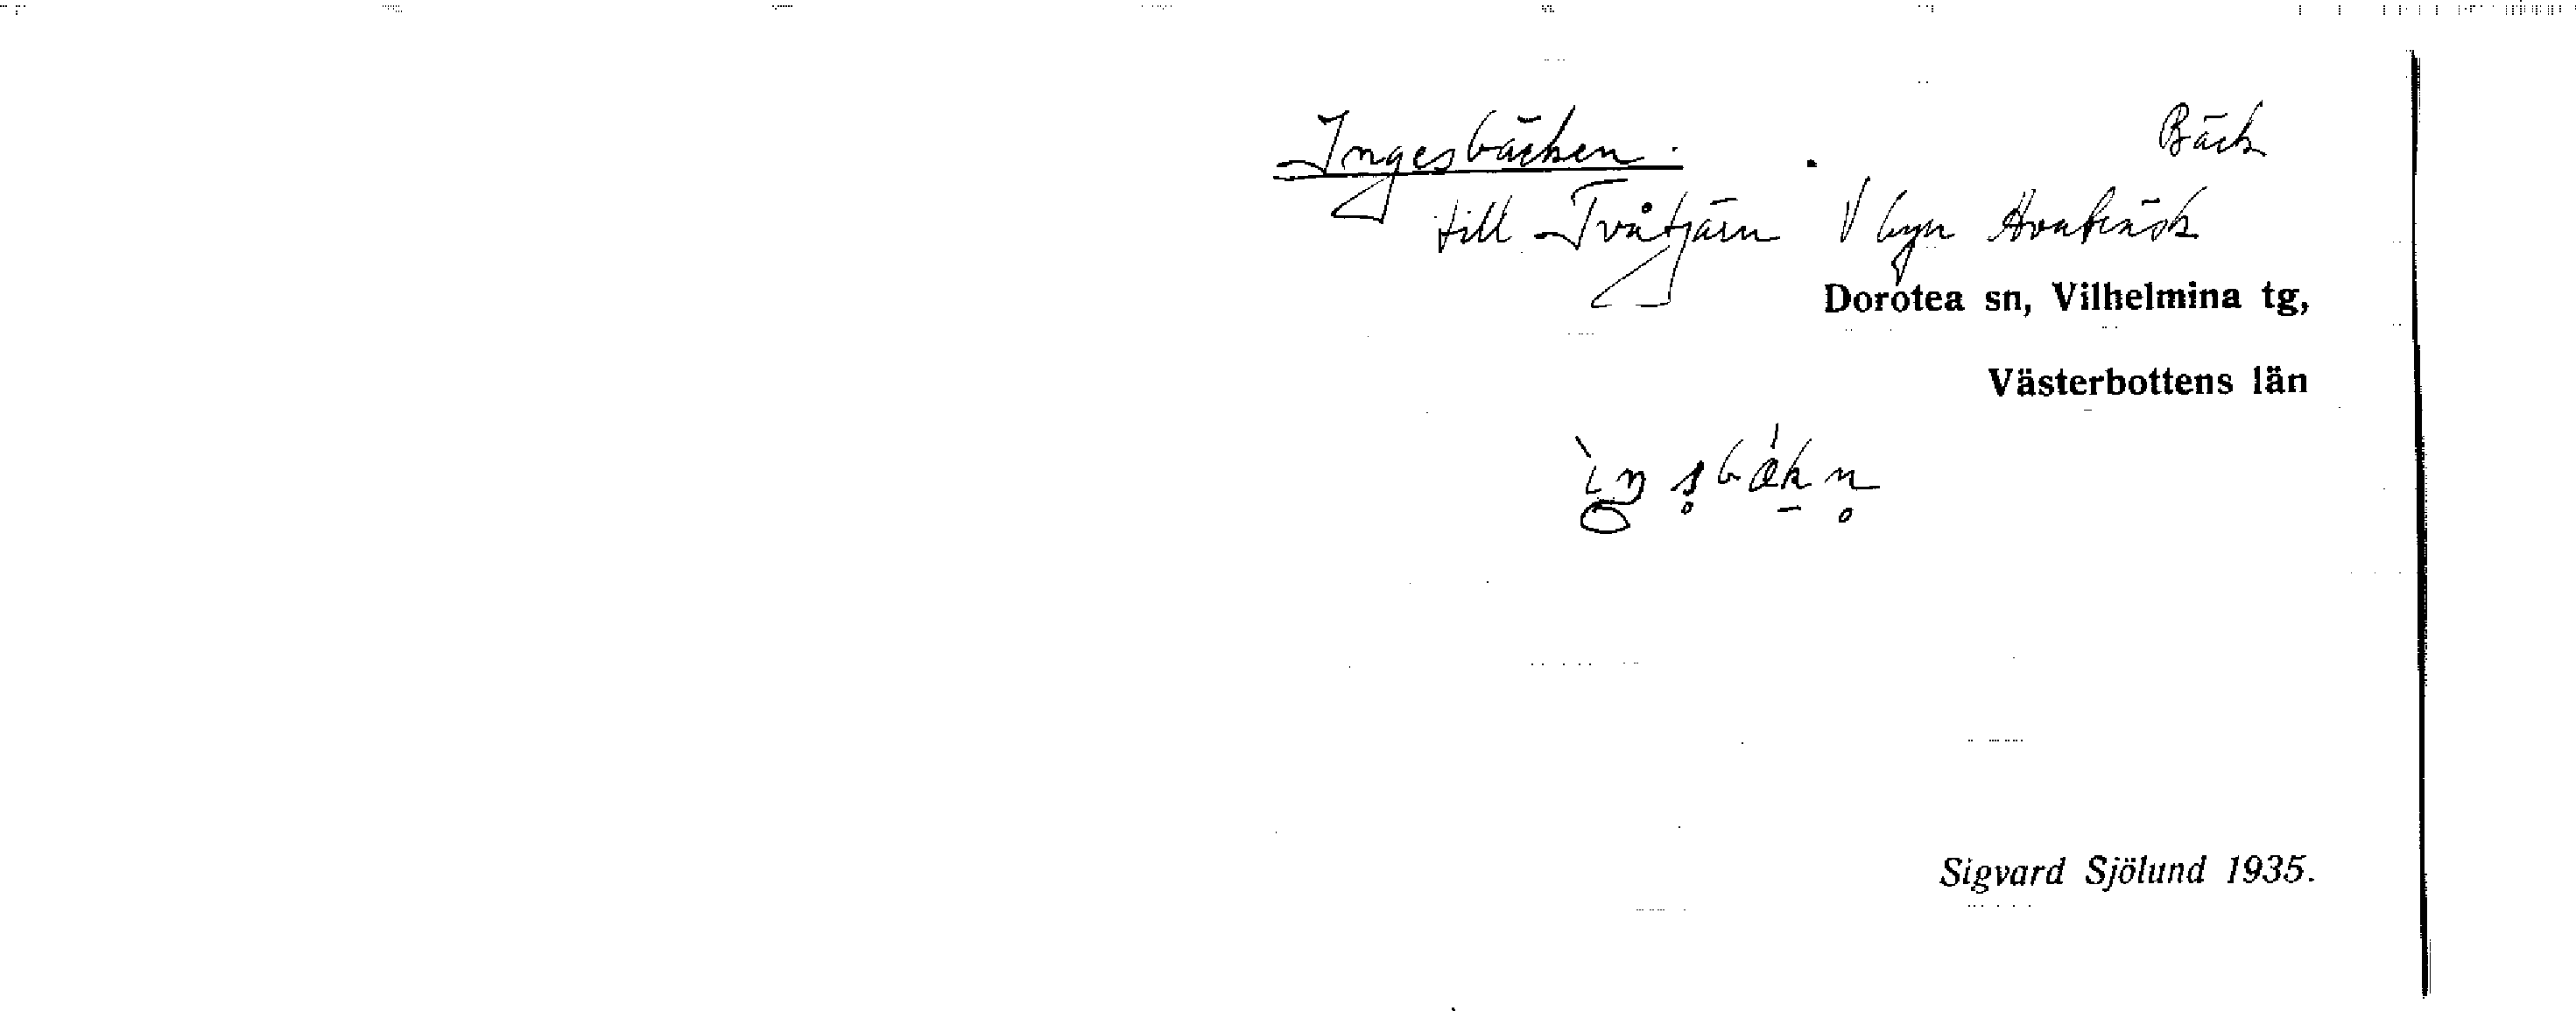 Ingesbäcken. Bäck
till Tvåtjärn V byn Avaträsk
Dorotea sn, Vilhelmina tg,
Västerbottens län
Sigvard Sjölund 1935.